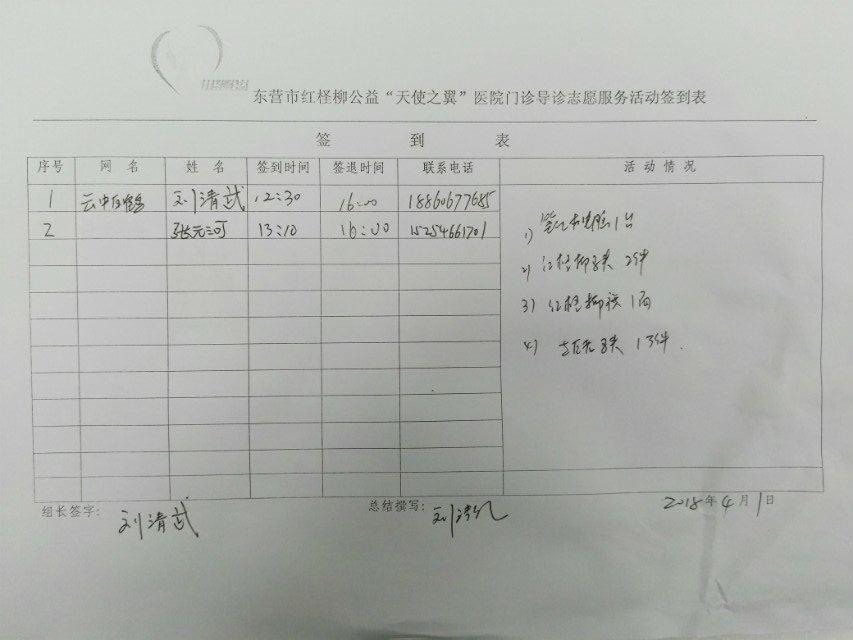 东营市红柽柳公益“天使之翼”医院门诊导诊志愿服务活动签到表
签 到 表
序号 网 名 姓 名 签到时间 签退时间 联系电话 活动情况
1 云中白鹤 刘清武 12:30 16:00 18860677685
2 张元河 13:10 16:00 15254661701
1) 笔记本电脑1台
2) 红柽柳 2件
3) 红柽柳旗1面
4) 13件.
组长签字: 刘清武 总结撰写: 刘清 2018年4月1日